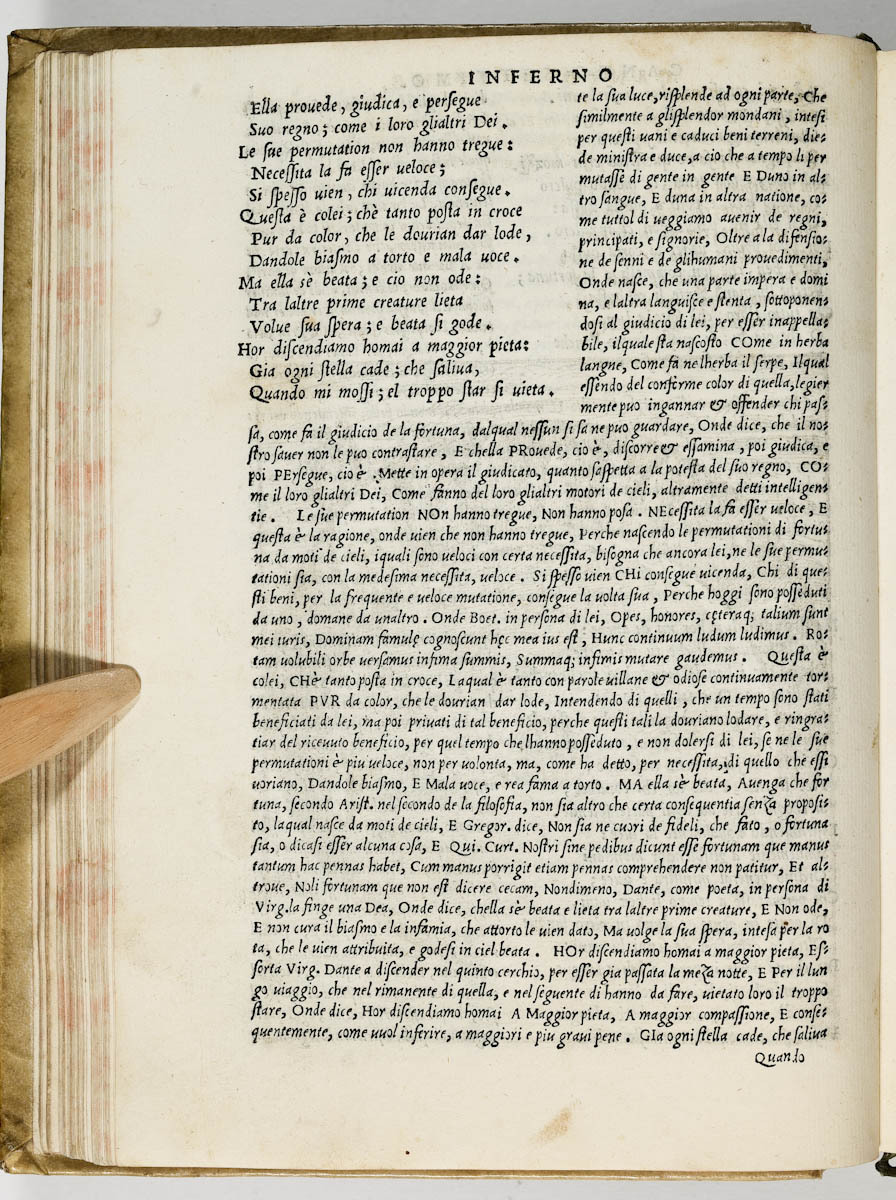 INFERNO
Ella prouede, giudica, e persegue
Suo regno; come i loro glialtri Dei.
Le sue permutation non hanno tregue:
Necessita la fa esser ueloce;
Si spesso uien, chi uicenda consegue.
Questa è colei; chè tanto posta in croce
Pur da color, che le dourian dar lode,
Dandole biasmo a torto e mala uoce.
Ma ella sè beata; e cio non ode:
Tra laltre prime creature lieta
Volue sua spera; e beata si gode.
Hor discendiamo homai a maggior pieta:
Gia ogni stella cade; che saliua,
Quando mi mossi; el troppo star si uieta.
te la sua luce, risplende ad ogni parte, Che
similmente a glisplendor mondani, intesi
per questi uani e caduci beni terreni, die-
de ministra e duce, a cio che a tempo li per
mutassè di gente in gente E Duno in al-
tro sangue, E duna in altra natione, co-
me tuttol di ueggiamo auenir de regni,
principati, e signorie, Oltre a la difensio-
ne de senni e de glihumani prouedimenti,
Onde nasce, che una parte impera e domi
na, e laltra languisce e stenta, sottoponen-
dosi al giudicio di lei, per esser inappella-
bile, ilquale sta nascosto COme in herba
langue, Come fa ne lherba il serpe, Ilqual
essendo del conforme color di quella, legier
mente puo ingannar & offender chi pas-
sa, come fa il giudicio de la fortuna, dalqual nessun si sa ne puo guardare, Onde dice, che il no-
stro sauer non le puo contrastare, E chella PRouede, cio è, discorre & essamina, poi giudica, e
poi PErsegue, cio è. Mette in opera il giudicato, quanto saspetta a la potesta del suo regno, CO-
me il loro glialtri Dei, Come fanno del loro glialtri motori de cieli, altramente detti intelligen-
tie. Le sue permutation NOn hanno tregue, Non hanno posa. NEcessita la fa esser ueloce, E
questa è la ragione, onde uien che non hanno tregue, Perche nascendo le permutationi di fortu-
na da moti de cieli, iquali sono ueloci con certa necessita, bisogna che ancora lei, ne le sue permu-
tationi sia, con la medesima necessita, ueloce. Si spesso uien CHi consegue uicenda, Chi di que-
sti beni, per la frequente e ueloce mutatione, consegue la uolta sua, Perche hoggi sono posseduti
da uno, domane da unaltro. Onde Boet. in persona di lei, Opes, honores, cęteraq; talium sunt
mei iuris, Dominam famulę cognoscunt hęc mea ius est, Hunc continuum ludum ludimus. Ro-
tam uolubili orbe uersamus infima summis, Summaq; infimis mutare gaudemus. Questa è
colei, CHè tanto posta in croce, Laqual è tanto con parole uillane & odiose continuamente tor-
mentata PVR da color, che le dourian dar lode, Intendendo di quelli, che un tempo sono stati
beneficiati da lei, ma poi priuati di tal beneficio, perche questi tali la douriano lodare, e ringra-
tiar del riceuuto beneficio, per quel tempo che lhanno posseduto, e non dolersi di lei, se ne le sue
permutationi è piu ueloce, non per uolonta, ma, come ha detto, per necessita, di quello che essi
uoriano, Dandole biasmo, E Mala uoce, e rea fama a torto. MA ella sè beata, Auenga che for
tuna, secondo Arist. nel secondo de la filosofia, non sia altro che certa consequentia senza proposi-
to, laqual nasce da moti de cieli, E Gregor. dice, Non sia ne cuori de fideli, che fato, o fortuna
sia, o dicasi esser alcuna cosa, E Qui. Curt. Nostri sine pedibus dicunt esse fortunam que manus
tantum hac pennas habet, Cum manus porrigit etiam pennas comprehendere non patitur, Et al-
troue, Noli fortunam que non est dicere cecam, Nondimeno, Dante, come poeta, in persona di
Virg. la finge una Dea, Onde dice, chella sè beata e lieta tra laltre prime creature, E Non ode,
E non cura il biasmo e la infamia, che attorto le uien dato, Ma uolge la sua spera, intesa per la ro
ta, che le uien attribuita, e godesi in ciel beata. HOr discendiamo homai a maggior pieta, Es-
sorta Virg. Dante a discender nel quinto cerchio, per esser gia passata la meza notte, E Per il lun
go uiaggio, che nel rimanente di quella, e nel seguente di hanno da fare, uietato loro il troppo
stare, Onde dice, Hor discendiamo homai A Maggior pieta, A maggior compassione, E conse-
quentemente, come uuol inferire, a maggiori e piu graui pene. GIa ogni stella cade, che saliua
Quando